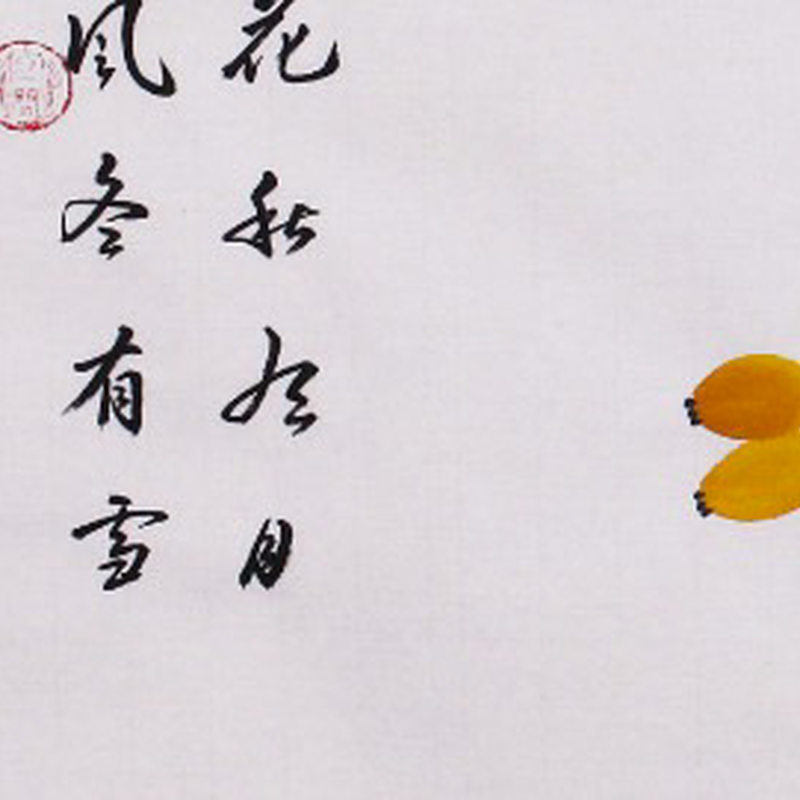 花秋有月
風冬有雪